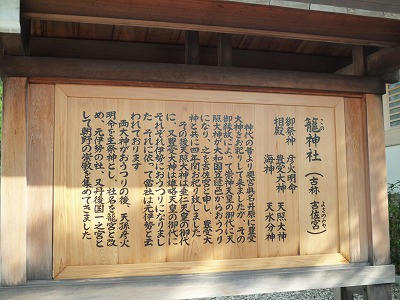 この
籠神社（古称 吉佐宮）
よさのみや
御祭神 彦火明命
相殿 豊受大神 天照大神
海神 天水分神
神代の昔より奥宮眞名井原に豊受
大神をお祀りして来ましたが その
御縁故によって崇神天皇の御代に天
照大神が大和国笠縫邑からおうつり
になり、之を吉佐宮と申し、豊受大
神と共に四年間お祀り致しました。
その後天照大神は垂仁天皇の御代
に、又豊受大神は雄略天皇の御代に
それぞれ伊勢におうつりになりまし
た それに依って當社は元伊勢と云
われております。
両大神がおうつりの後、天孫彦火
明命を主祭神とし、社名を籠宮と改
め、元伊勢の社、又丹後國一之宮と
して朝野の崇敬を集めてきました